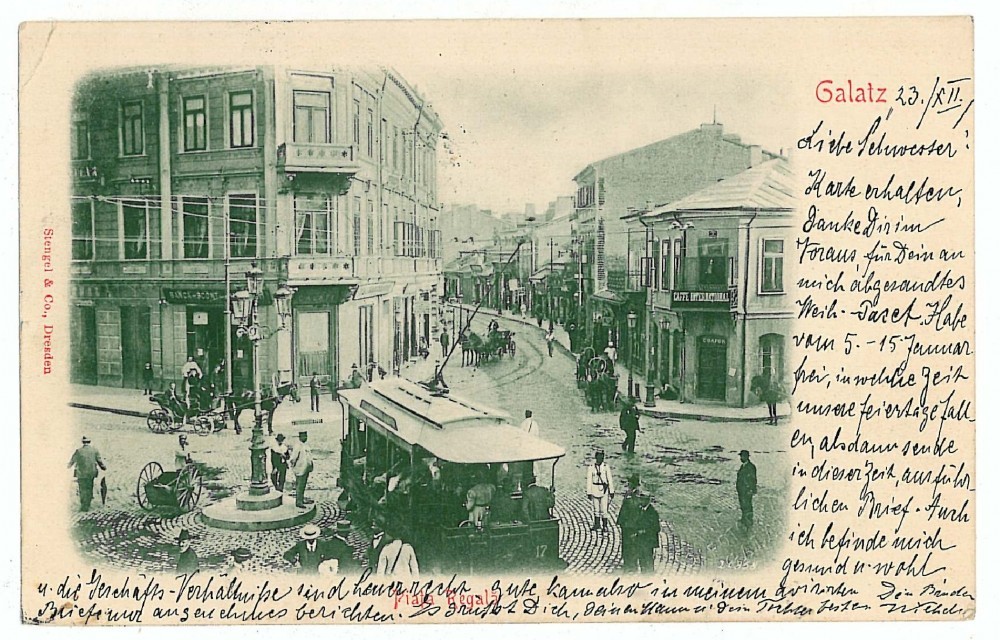 Galatz 23./XII.
Liebe Schwester!
Karte erhalten,
Danke Dir im
Voraus für Dein an
mich abgesandtes
Weih.-Packet. Habe
vom 5.-15 Januar
frei, in welche Zeit
unsere feiertage fall
en, alsdann sende
in dieser Zeit ausführ
lichen Brief. Auch
ich befinde mich
gesund u wohl
u. die Geschäfts-Verhältnisse sind heuer recht gute kann also in meinem
Briefe nur angenehmes berichten. Es grüßt Dich, Deinen Mann u Dein besten
Dein Bruder
Stengel & Co., Dresden
CAFFE INTERNATIONAL
17
Piata Regala